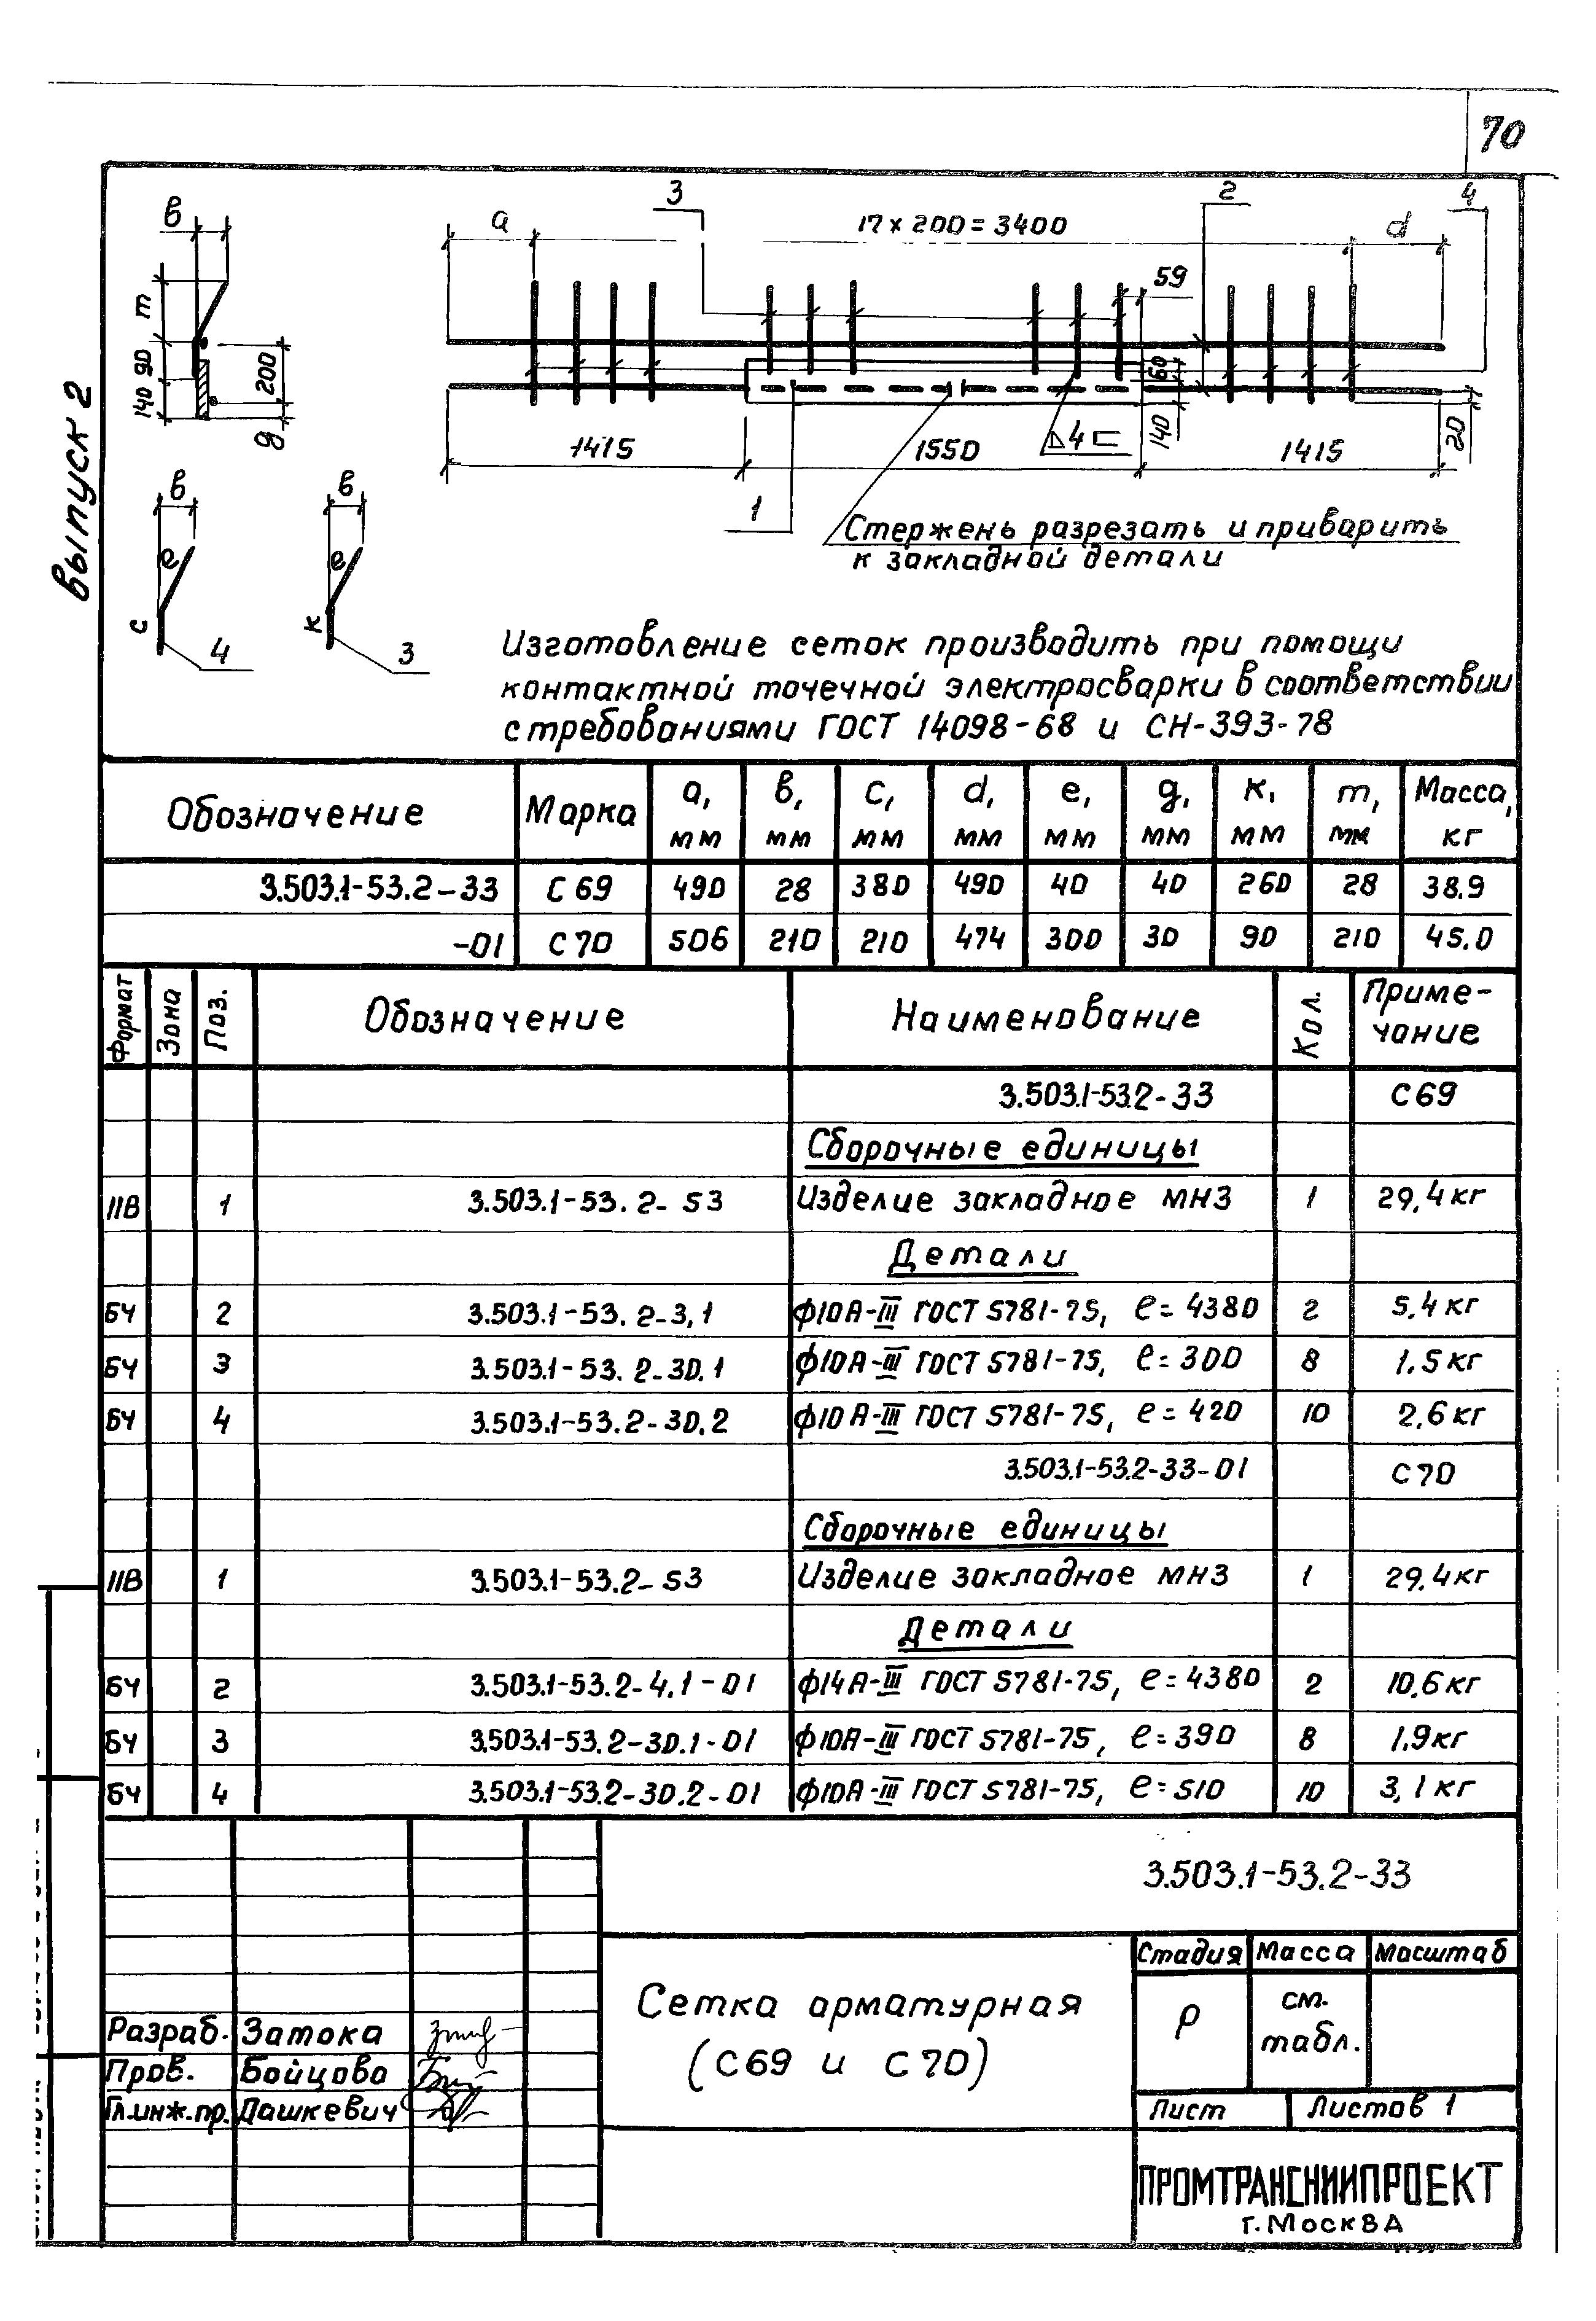 70
выпуск 2
в
m
90
140
200
g
3
2
4
a
17 × 200 = 3400
d
59
60
140
20
1415
1550
Δ4
1415
1
Стержень разрезать и приварить
к закладной детали
в
e
c
4
в
e
к
3
Изготовление сеток производить при помощи
контактной точечной электросварки в соответствии
с требованиями ГОСТ 14098-68 и СН-393-78
Обозначение Марка a, мм в, мм c, мм d, мм e, мм g, мм к, мм m, мм Масса, кг
3.503.1-53.2-33 С 69 490 28 380 490 40 40 260 28 38.9
-01 С 70 506 210 210 474 300 30 90 210 45.0
Формат Зона Поз. Обозначение Наименование Кол. Приме-
чание
3.503.1-53.2-33 С 69
Сборочные единицы
11В 1 3.503.1-53.2-53 Изделие закладное МН3 1 29,4 кг
Детали
БЧ 2 3.503.1-53.2-3.1 ф10А-III ГОСТ 5781-75, e=4380 2 5,4 кг
БЧ 3 3.503.1-53.2-30.1 ф10А-III ГОСТ 5781-75, e=300 8 1.5 кг
БЧ 4 3.503.1-53.2-30.2 ф10А-III ГОСТ 5781-75, e=420 10 2,6 кг
3.503.1-53.2-33-01 С 70
Сборочные единицы
11В 1 3.503.1-53.2-53 Изделие закладное МН3 1 29,4 кг
Детали
БЧ 2 3.503.1-53.2-4.1-01 ф14А-III ГОСТ 5781-75, e=4380 2 10,6 кг
БЧ 3 3.503.1-53.2-30.1-01 ф10А-III ГОСТ 5781-75, e=390 8 1.9 кг
БЧ 4 3.503.1-53.2-30.2-01 ф10А-III ГОСТ 5781-75, e=510 10 3,1 кг
3.503.1-53.2-33
Стадия Масса Масштаб
Сетка арматурная
(С69 и С70)
Р см.
табл.
Разраб. Затока
Пров. Бойцова
Гл.инж.пр. Дашкевич
Лист Листов 1
ПРОМТРАНСНИИПРОЕКТ
г. Москва